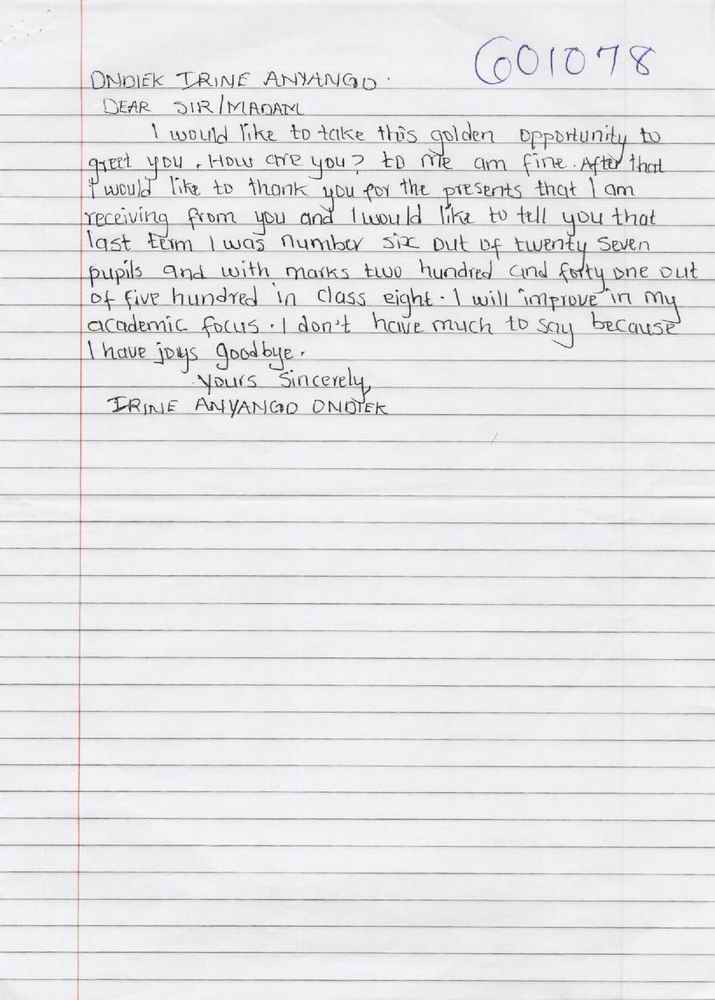 601078
ONDIEK IRINE ANYANGO.
DEAR SIR/MADAM
I would like to take this golden opportunity to
greet you. How are you? to me am fine. After that
I would like to thank you for the presents that I am
receiving from you and I would like to tell you that
last term I was number six out of twenty seven
pupils and with marks two hundred and forty one out
of five hundred in class eight. I will improve in my
academic focus. I don't have much to say because
I have joys goodbye.
Yours Sincerely,
IRINE ANYANGO ONDIEK